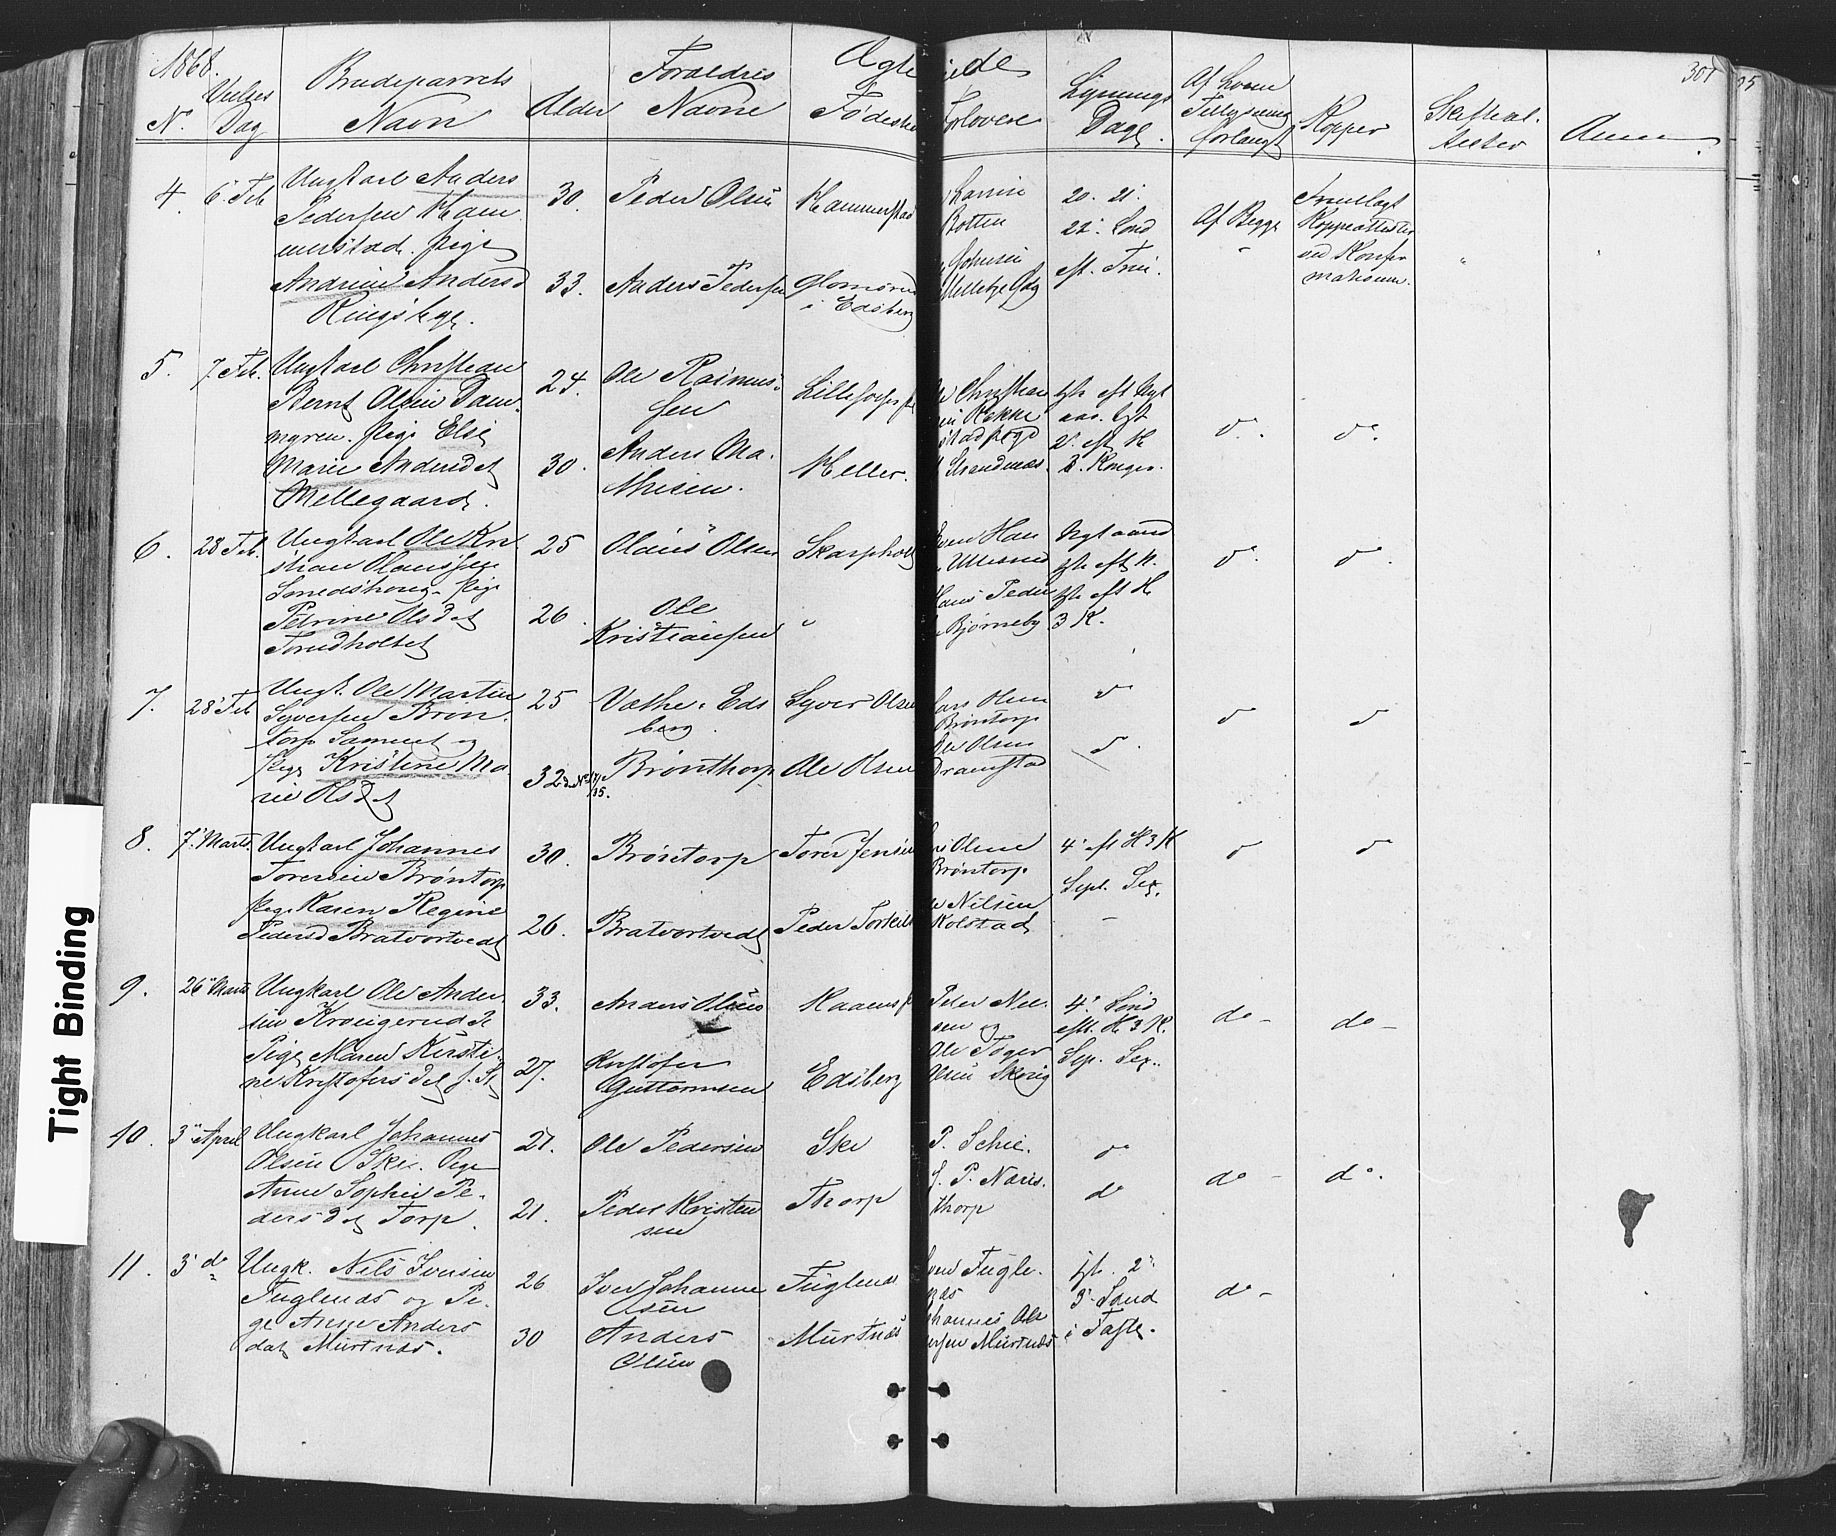 1868.
Ægte
viede
301
35
N.
Vielses
Dag
Brudeparrets
Navn
Alder
Forældres
Navne
Fødested
Forlovere
Lysnings
Dage.
Af hvem
Tillysning
forlangt
Kopper
Skifteat-
tester
Anm.
4.
6 Feb
Ungkarl Anders
Pedersen Ham
merstad. Pige
Andrine Andersd
30.
33.
Peder Olsen
Anders Pedersen
Hammerstad
i Edsberg
Botten
20. 21.
22. Sønd
eft. Tri.
Af Begge
Fremlagt
Koppeattester
ved Konfir
mationen.
5.
7 Feb.
Ungkarl Christian
Bernt Olsen Dam
myren. Pige Else
Marie Andersdat
Mellegaard.
24.
30.
Ole Rasmus-
sen
Anders Ma-
thisen.
Heller.
Christian
Strandnæs.
2. eft H
3 Konger.
do.
do.
6.
28 Feb.
Ungkarl Ole Kri
stian Olaussen
Smedshoug. Pige
Petrine Olsdat
Tordholtet
25
26.
Olaus Olsen
Ole
Kristiansen
Skarpholt
"
Even Han
Hans Peder
Bjørneby
Nytaarsd
1ste eft N.
1ste eft H
3 K.
do.
do.
7.
28 Feb
Ungk. Ole Martin
Syversen Brøn
torp Samme og
Pige Kristine Ma-
rie Olsdat
25
32
Væthe i Eds
berg.
Brønthorp
Syver Olsen
Ole Olsen
Lars Olsen
Brøntorp
Ole Olsen
Dramstad
do
do.
do
do
8.
7. Marts.
Ungkarl Johannes
Toresen Brøntorp
Pige Karen Regine
Pedersd Bratvortvedt
30.
26.
Brøntorp
Bratvortvedt
Torer Jensen
Peder Torkels
Olsen
Brøntorp
Nilsen
Kolstad
4 eft H 3 K
Sept. Sex.
do
do
9.
26 Marts
Ungkarl Ole Ander
sen Krougerud &
Pige Maren Kirsti-
ne Kristofersdat
33.
27.
Anders Olsen
Kristofer
Guttormsen
Edsberg
Peter Niel-
sen og
Ole Tøger
Olsen Skovig
4. Sønd
eft. H 3 K.
Sep. Sex.
do -
do -
10.
3 April
Ungkarl Johannes
Olsen Skie. Pige
Anne Sophie Pe-
dersdat Torp.
27.
21.
Ole Pedersen
Peder Kristen
sen
Ske
Thorp
P. Schie.
J. P. Næris-
thorp
do
do
do -
do.
11.
3 do
Ungk. Nils Iversen
Fuglenæs og Pi-
ge Anne Anders
dat Murtnæs.
26
30
Iver Johanne
sen
Anders
Olsen
Fuglenæs
Murtnæs
Fugle-
næs
Johannes Ole
Murtnæs
1ste. 2
3 Sønd
i Faste.
do -
Tight Binding